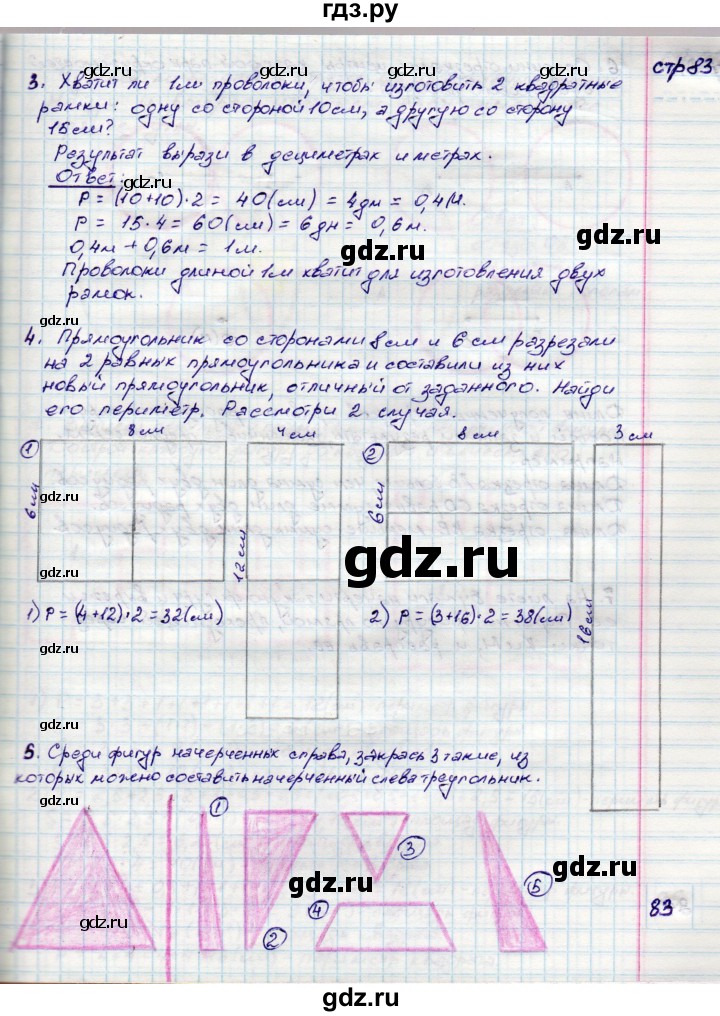 гдз.ру
стр 83
3. Хватит ли 1м проволоки, чтобы изготовить 2 квадратные
рамки: одну со стороной 10см, а другую со сторону
15см?
Результат вырази в дециметрах и метрах.
Ответ:
P = (10+10)·2 = 40(см) = 4дм = 0,4м.
P = 15·4 = 60(см) = 6дм = 0,6м.
0,4м + 0,6м = 1м.
Проволоки длиной 1м хватит для изготовления двух
рамок.
4. Прямоугольник со сторонами 8см и 6см разрезали
на 2 равных прямоугольника и составили из них
новый прямоугольник, отличный от заданного. Найди
его периметр. Рассмотри 2 случая.
1 8см 4см 2 8см 3см
6см 12см 6см 16см
1) P = (4+12)·2 = 32(см) 2) P = (3+16)·2 = 38(см)
5. Среди фигур начерченных справа, закрась 3 такие, из
которых можно составить начерченный слева треугольник.
1 2 3 4 5
83
gdz.ru
gdz.ru
gdz.ru
gdz.ru
gdz.ru
gdz.ru
gdz.ru
gdz.ru
gdz.ru
gdz.ru
gdz.ru
gdz.ru
gdz.ru
gdz.ru